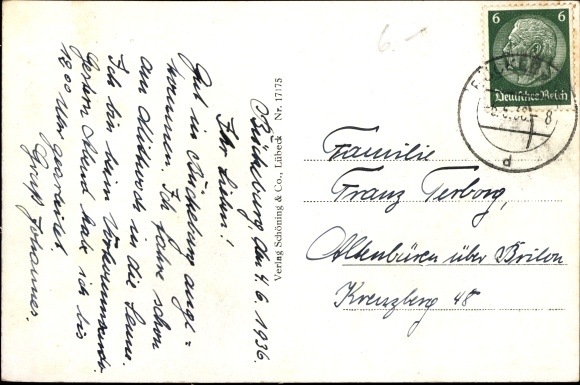 Bückeburg, den 4.6.1936.
Ihr Lieben!
Gut in Bückeburg ange-
kommen. Ich fahre schon
am Mittwoch in die Senne.
Ich bin beim
Gestern Abend habe ich bis
13.00 Uhr gearbeitet.
Gruß Johannes.
Verlag Schöning & Co., Lübeck Nr. 17175
6.-
6 6
Deutsches Reich
8
d
Familie
Franz Terborg,
Altenbüren über Brilon
Kreuzberg 48